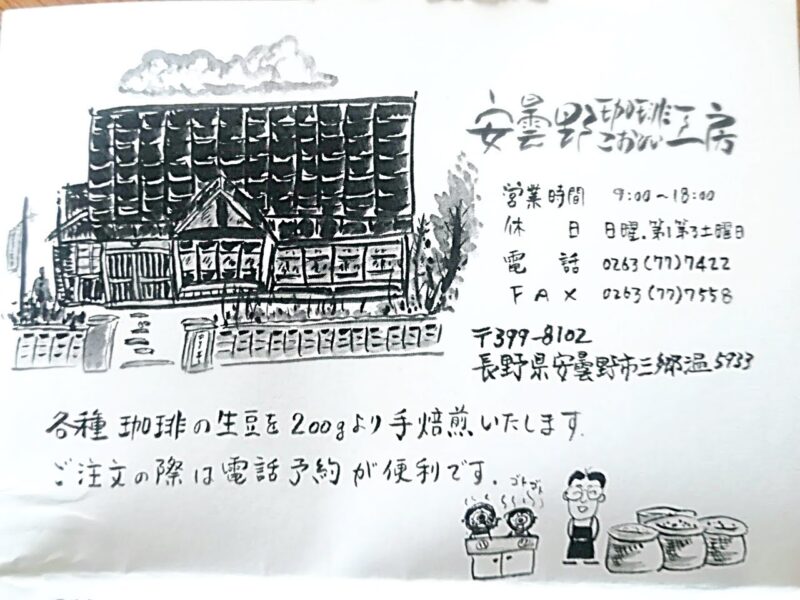 安曇野珈琲工房
こおひい
営業時間 9:00〜18:00
休日 日曜、第1第3土曜日
電話 0263(77)7422
FAX 0263(77)7558
〒399-8102
長野県安曇野市三郷温5933
各種珈琲の生豆を200gより手焙煎いたします.
ご注文の際は電話予約が便利です.
ゴトゴト